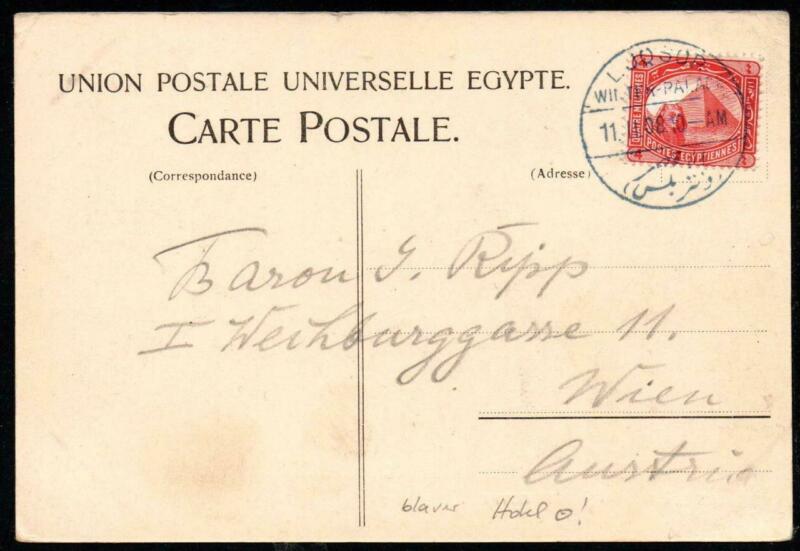 UNION POSTALE UNIVERSELLE EGYPTE.
CARTE POSTALE.
(Correspondance)
(Adresse)
LUQSOR
WINTER-PALACE
11. 08.10- AM
QUATRE MILLIEMES
POSTES EGYPTIENNES
4 4
Baron J. Ripp
I Weihburggasse 11.
Wien
Austria
blauer Hotel O!